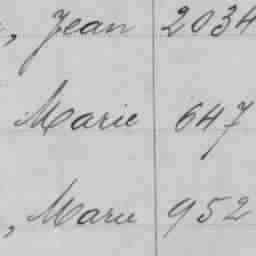 , Jean 2034
Marie 647
, Marie 952